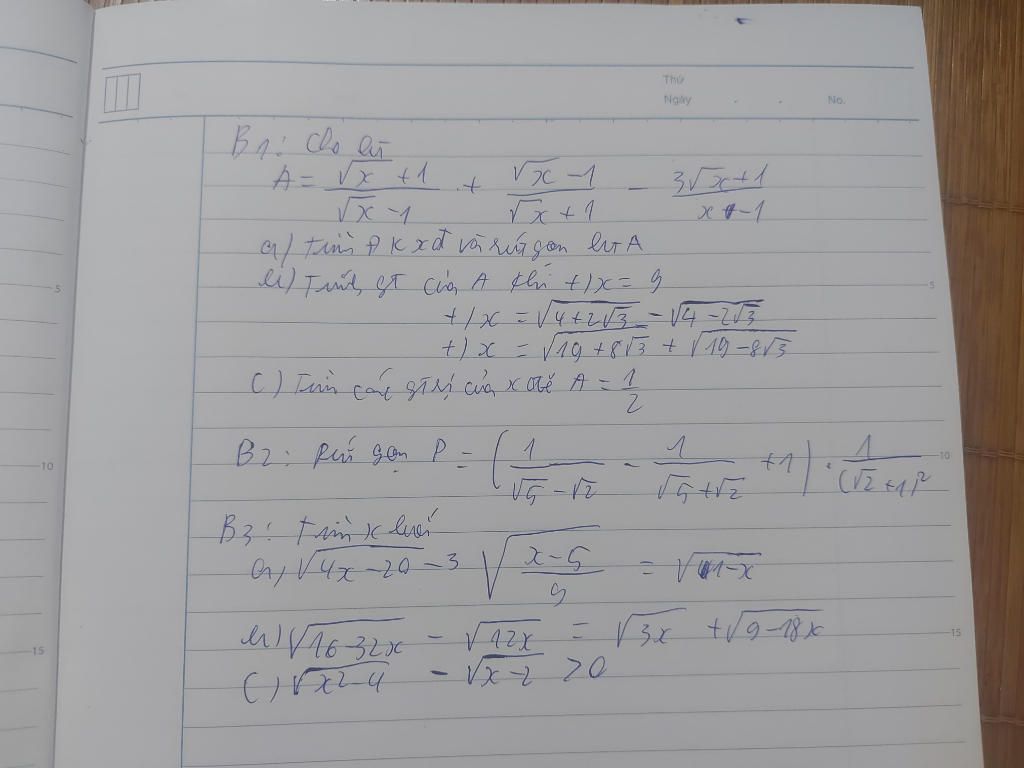 Thứ
Ngày . . No.
B1: Cho bt
A = \frac{\sqrt{x}+1}{\sqrt{x}-1} + \frac{\sqrt{x}-1}{\sqrt{x}+1} - \frac{3\sqrt{x}+1}{x-1}
a) Tìm Đkxđ và rút gọn bt A
b) Tính gt của A khi +) x = 9
+) x = \sqrt{4+2\sqrt{3}} - \sqrt{4-2\sqrt{3}}
+) x = \sqrt{19+8\sqrt{3}} + \sqrt{19-8\sqrt{3}}
c) Tìm các gtrị của x để A = \frac{1}{2}
B2: Rút gọn P = (\frac{1}{\sqrt{5}-\sqrt{2}} - \frac{1}{\sqrt{5}+\sqrt{2}} + 1) \cdot \frac{1}{(\sqrt{2}+1)^2}
B3: Tìm x biết
a) \sqrt{4x-20} - 3\sqrt{\frac{x-5}{9}} = \sqrt{1-x}
b) \sqrt{16-32x} - \sqrt{12x} = \sqrt{3x} + \sqrt{9-18x}
c) \sqrt{x^2-4} - \sqrt{x-2} > 0
5
10
15
5
10
15